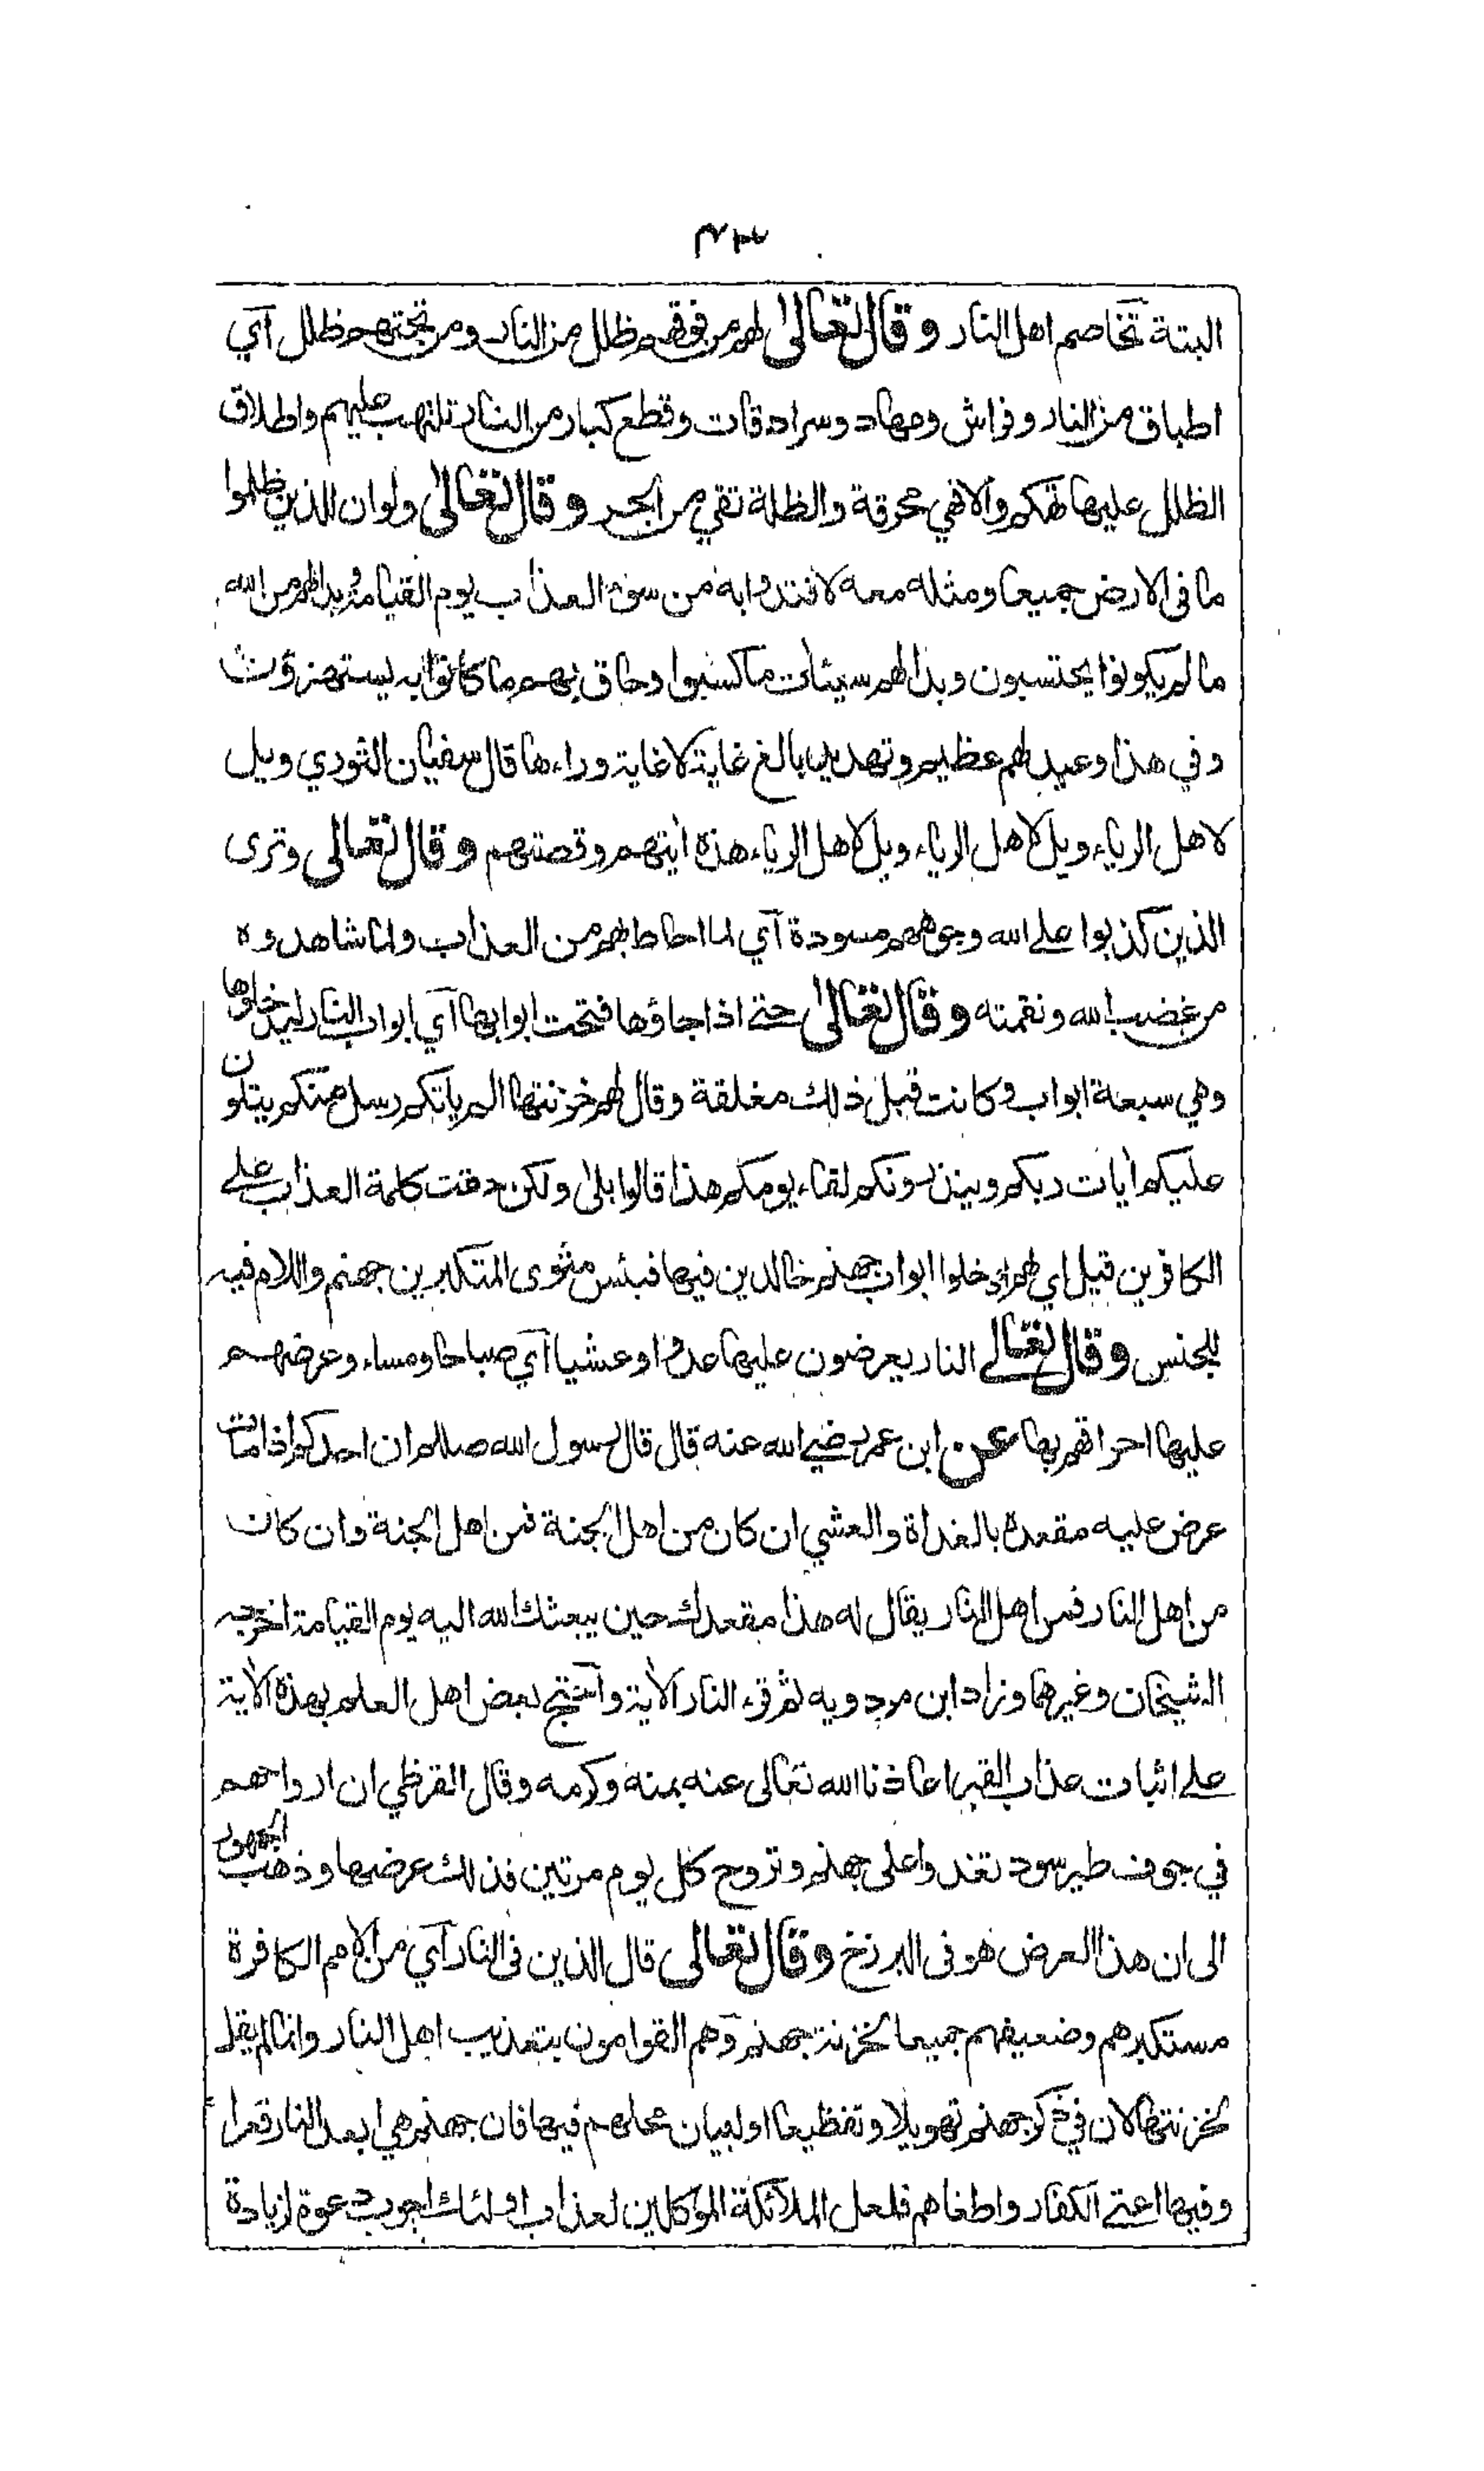 ٤٣
البتة تخاصم اهل النار وقال تعالى لهم من فوقهم ظلل من النار ومن تحتهم ظلل آي
اطباق من النار وفراش ومهاد وسرادقات وقطع كبار من النار تلتهب عليهم واطلاق
الظلل عليها تهكم والا فهي محرقة والظلة تقي من الحر وقال تعالى ولو ان للذين ظلموا
ما فى الارض جميعا ومثله معه لافتدوا به من سوء العذاب يوم القيامة وبدا لهم من الله
ما لم يكونوا يحتسبون وبدا لهم سيئات ما كسبوا وحاق بهم ما كانوا به يستهزؤن
وفي هذا وعيد لهم عظيم وتهديد بالغ غاية لا غاية وراءها قال سفيان الثوري ويل
لاهل الرياء ويل لاهل الرياء ويل لاهل الرياء هذه اٰيتهم وقصتهم وقال تعالى وترى
الذين كذبوا على الله وجوههم مسودة آي لما احاط بهم من العذاب ولما شاهدوه
من غضب الله ونقمته وقال تعالىٰ حتى اذا جاؤها فتحت ابوابها آي ابواب النار ليدخلوها
وهي سبعة ابواب وكانت قبل ذلك مغلقة وقال لهم خزنتها الم ياتكم رسل منكم يتلون
عليكم اٰيات ربكم وينذرونكم لقاء يومكم هذا قالوا بلىٰ ولكن حقت كلمة العذاب على
الكافرين قيل اي لهم ادخلوا ابواب جهنم خالدين فيها فبئس مثوى المتكبرين جهنم واللام فيه
للجنس وقال تعالى النار يعرضون عليها غدوا وعشيا آي صباحا ومساء وعرضهم
عليها احراقهم بها عن ابن عمر رضي الله عنه قال قال رسول الله صللم ان احدكم اذا مات
عرض عليه مقعده بالغداة والعشي ان كان من اهل الجنة فمن اهل الجنة وان كان
من اهل النار فمن اهل النار يقال له هذا مقعدك حين يبعثك الله اليه يوم القيامة اخرجه
الشيخان وغيرهما وزاد ابن مردويه ثم قرء النار الاٰية وآحتج بعض اهل العلم بهذه الاٰية
على اثبات عذاب القبر اعاذنا الله تعالى عنه بمنه وكرمه وقال القرظي ان ارواحهم
في جوف طير سود تغدوا على جهنم وتروح كل يوم مرتين فذلك عرضها وذهب الجمهور
الى ان هذا العرض هو فى البرزخ وقال تعالى قال الذين فى النار آي من الامم الكافرة
مستكبرهم وضعيفهم جميعا لخزنة جهنم وهم القوامون بتعذيب اهل النار وانما لم يقل
لخزنتها لان في ذكر جهنم تهويلا وتفظيعا او لبيان محلهم فيها فان جهنم هي ابعد النار قعرا
وفيها اعتى الكفار واطغاهم فلعل الملائكة الموكلين لعذاب اولئك اجوب دعوة لزيادة